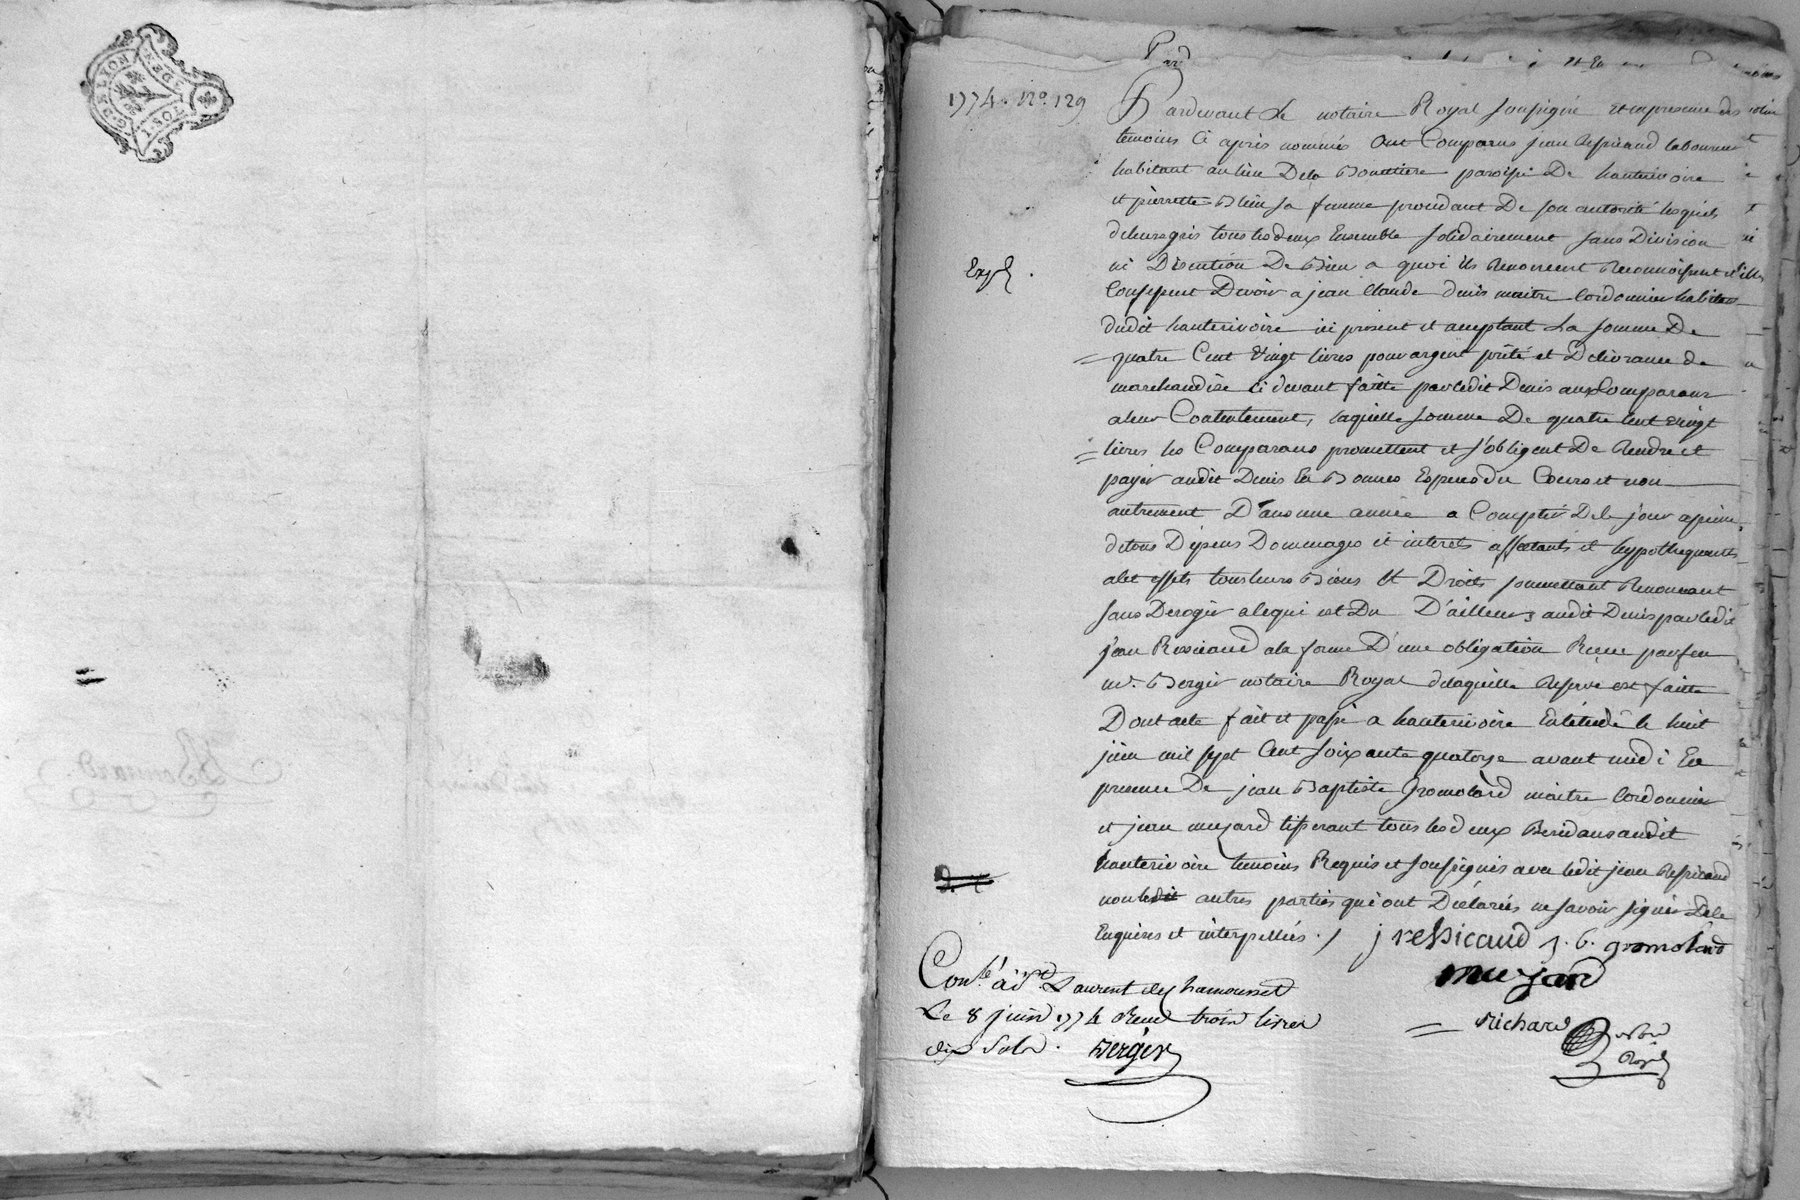 G. DE LYON
1774. No. 129
Pardevant Le notaire Royal soussigné et en presence des
temoins Ci après nommés Ont Comparus jean Ressicaud laboureur
habitant au lieu De la paroisse De hauterivoire
et pierrette sa femme procedant De son autorité lesquels
de leurs gris tous les deux Ensemble solidairement sans Division
ni Discution De Bien a quoi ils Renoncent Reconnoissent et
Confessent Devoir a jean Claude denis maitre Cordonnier habitant
dudit hauterivoire ici present et acceptant La somme De
quatre Cent vingt livres pour argent prêté et Delivrance de
marchandise Ci devant faitte par ledit Denis aux Comparans
a leur Contentement, laquelle somme De quatre Cent vingt
livres les Comparans promettent et s'obligent De Rendre et
payer audit Denis En Bonnes Especes du Cours et non
autrement D'ans une année a Compter De le jour a peine
de tous Dépens Dommages et interets affectants et hypothequants
a cet effet tous leurs Biens et Droits soumettant Renonceant
sans Deroger a le qui est Du D'ailleurs audit Denis par ledit
jean Ressicaud a la forme D'une obligation Recue par feu
me. Berger notaire Royal de laquelle Reserve est faitte
Dont acte fait et passé a hauterivoire En létude le huit
juin mil sept Cent soixante quatorze avant midi En
presence De jean Baptiste gromolard maitre Cordonnier
et jean muzard tisserant tous les deux Residans audit
hauterivoire temoins Requis et soussignés avec ledit jean Ressicaud
non autres parties qui ont Déclarées ne savoir signer De le
Enquises et interpellées ./ j ressicaud j. b. gromolard
muzard
Conlé. à St. Laurent de Chamousset
Le 8 juin 1774 Recu trois livres
dix Sols. Berger
Richard